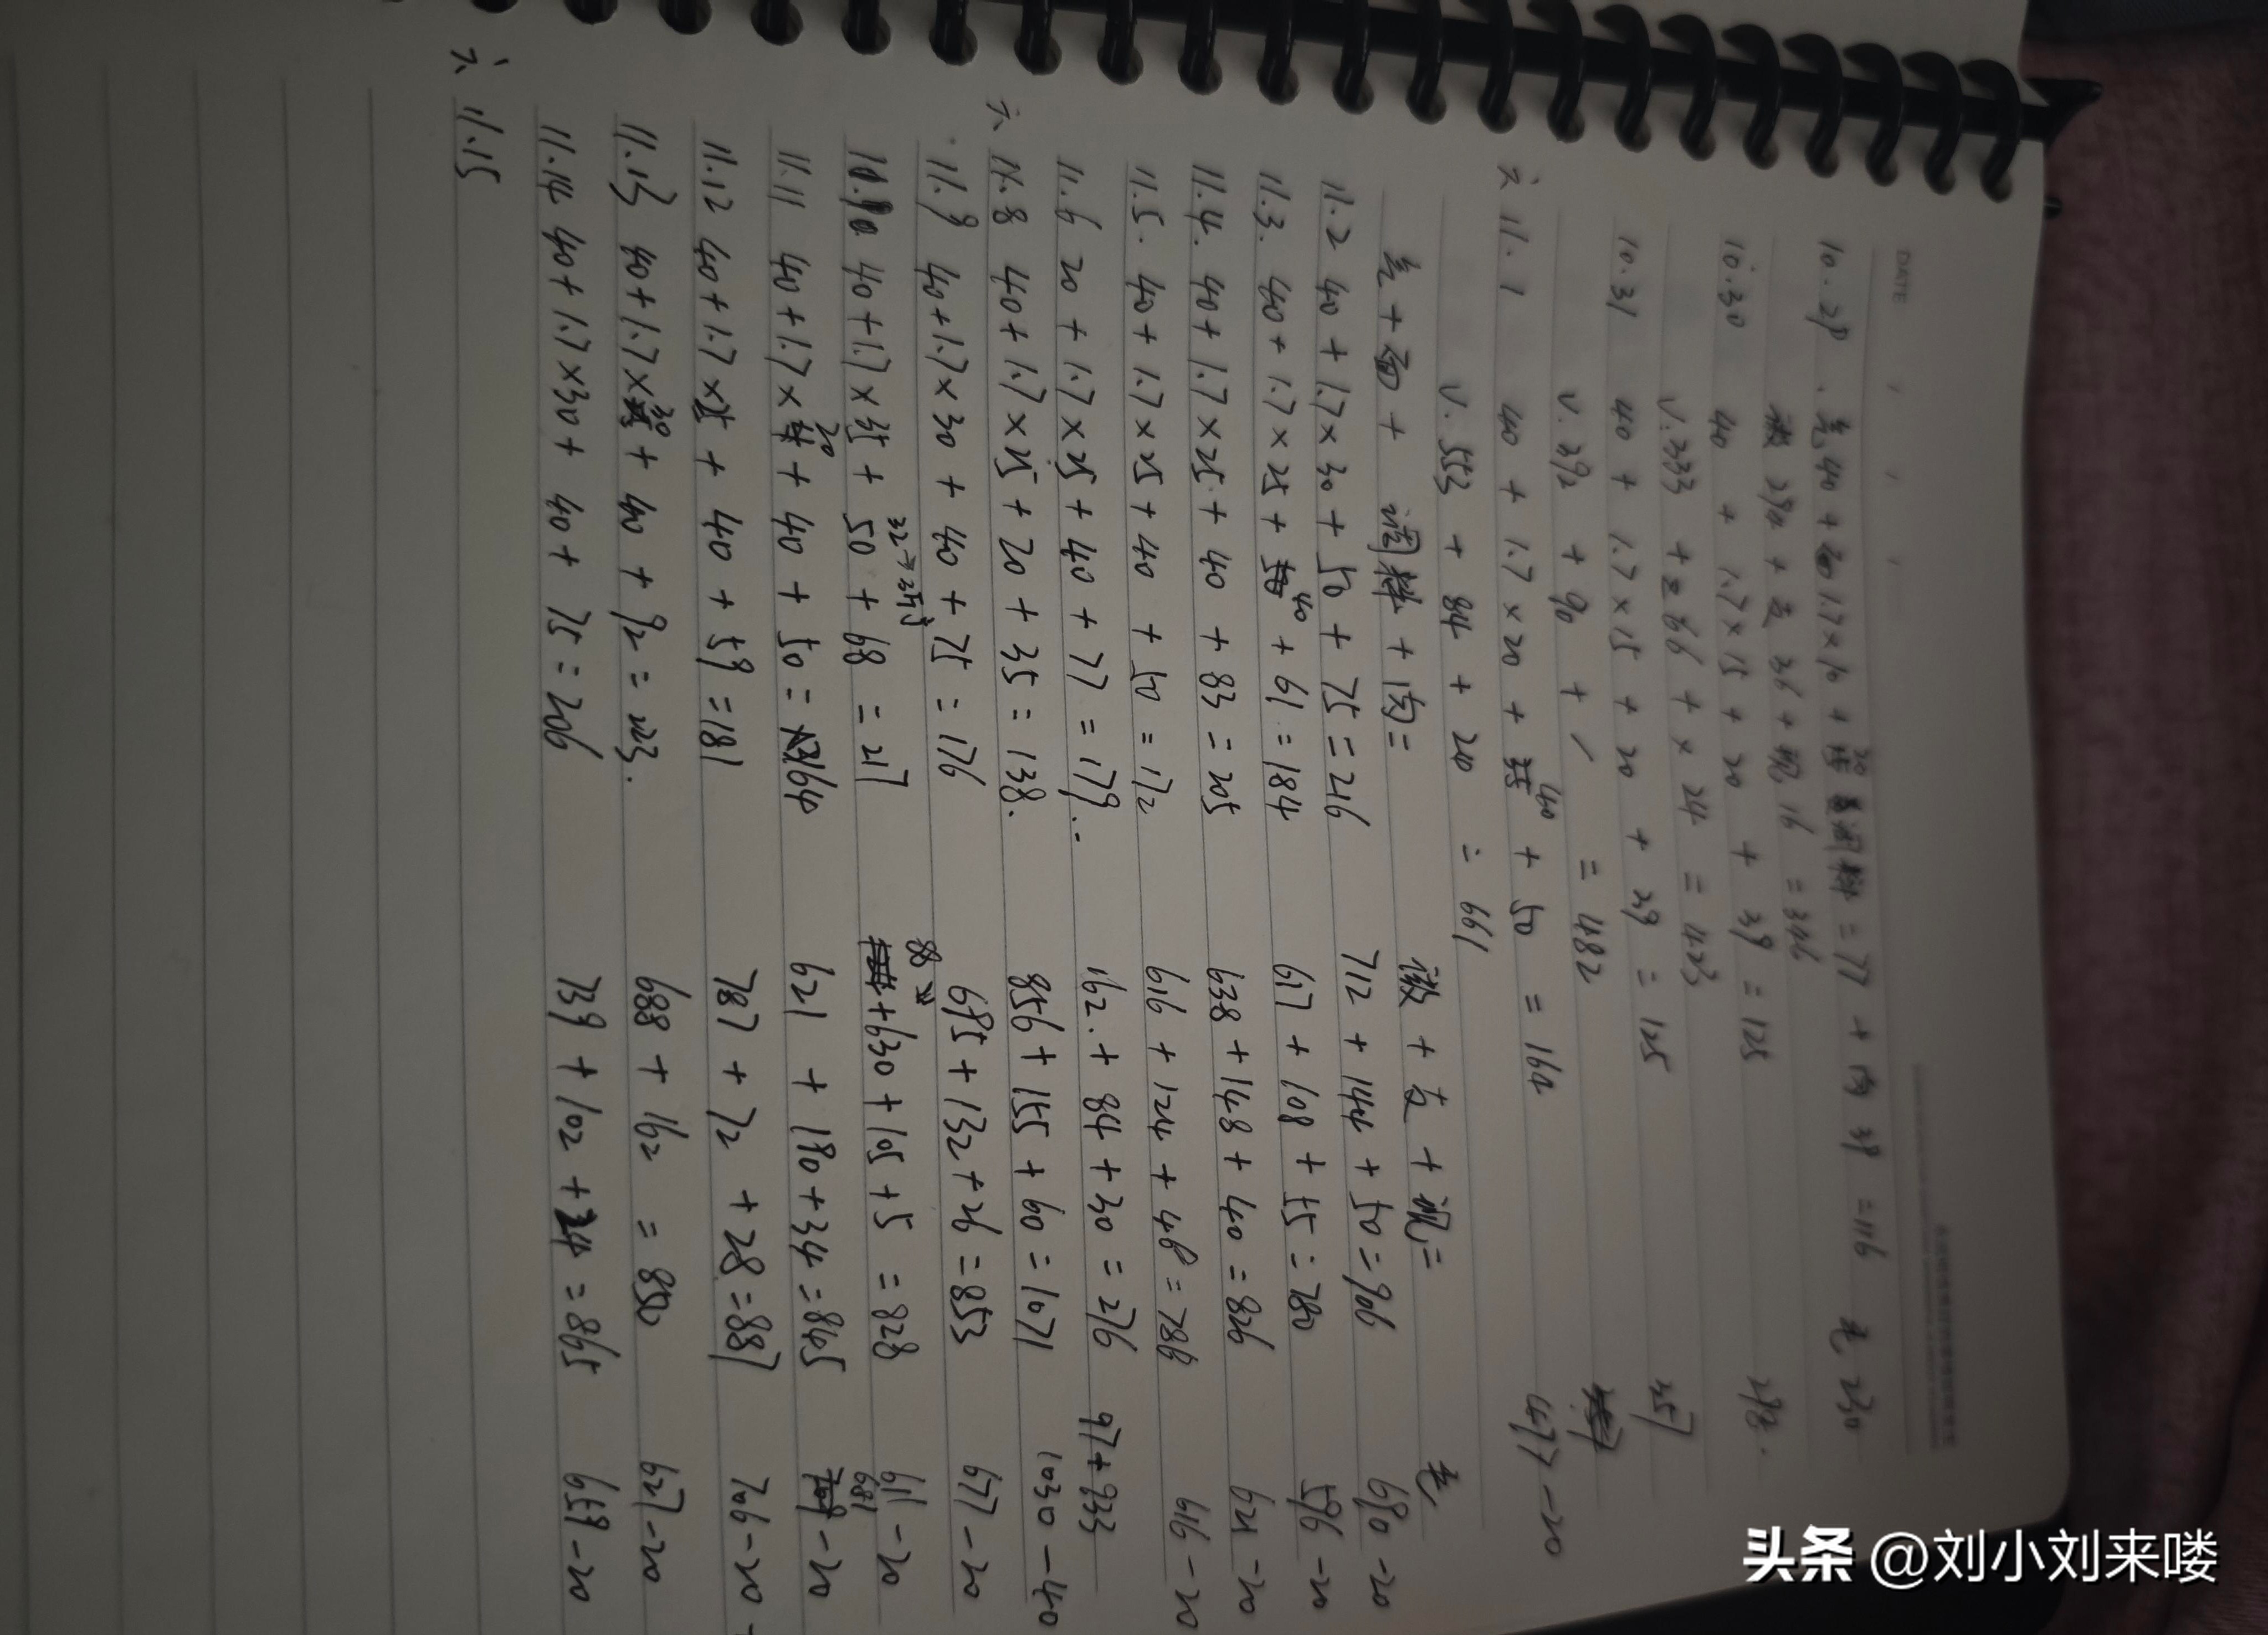 DATE
10.29. 煮40+面1.7×10+20调料=77+肉39=116 毛230
微290+支36+现16=346
10.30 40+1.7×15+20+39=125 298.
V.333+支66+又24=423
10.31 40+1.7×15+20+39=125 357
V.392+90+/=482
六 11.1 40+1.7×20+40+50=164 477-20
V.553+84+20=661
煮+面+调料+肉= 微+支+现= 毛
11.2 40+1.7×30+50+75=216 712+144+50=906 680-20
11.3. 40+1.7×25+40+61=184 617+108+55=780 596-20
11.4. 40+1.7×25+40+83=205 638+148+40=826 621-20
11.5. 40+1.7×25+40+50=172 616+124+48=788 616-20
11.6 20+1.7×25+40+77=179.. 162.+84+30=276 97+933
六 11.8 40+1.7×25+20+35=138. 856+155+60=1071 1030-40
11.9 40+1.7×30+40+75=176 695+132+26=853 677-20
11.10. 40+1.7×35+50+68=217 88 +630+105+5=828 611-20
11.11 40+1.7×20+40+50=164 621+190+34=845 681-20
11.12 40+1.7×25+40+59=181 787+72+28=887 706-20
11.13 40+1.7×30+40+92=223. 688+162=850 627-20
11.14 40+1.7×30+40+75=206 739+102+24=865 659-20
六 11.15
头条 @刘小刘来喽